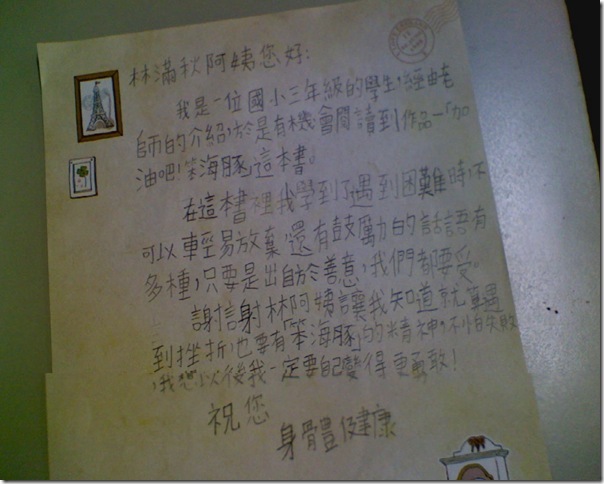 林滿秋阿姨您好:
我是一位國小三年級的學生,經由老
師的介紹,於是有機會閱讀到作品—「加
油吧!笨海豚」這本書。
在這本書裡我學到了遇到困難時,不
可以輕易放棄,還有鼓勵的話語有
多種,只要是出自於善意,我們都要受。
謝謝林阿姨讓我知道就算遇
到挫折,也要有「笨海豚」的精神,不怕失敗
,我想以後我一定要自己變得更勇敢!
祝您
身體健康